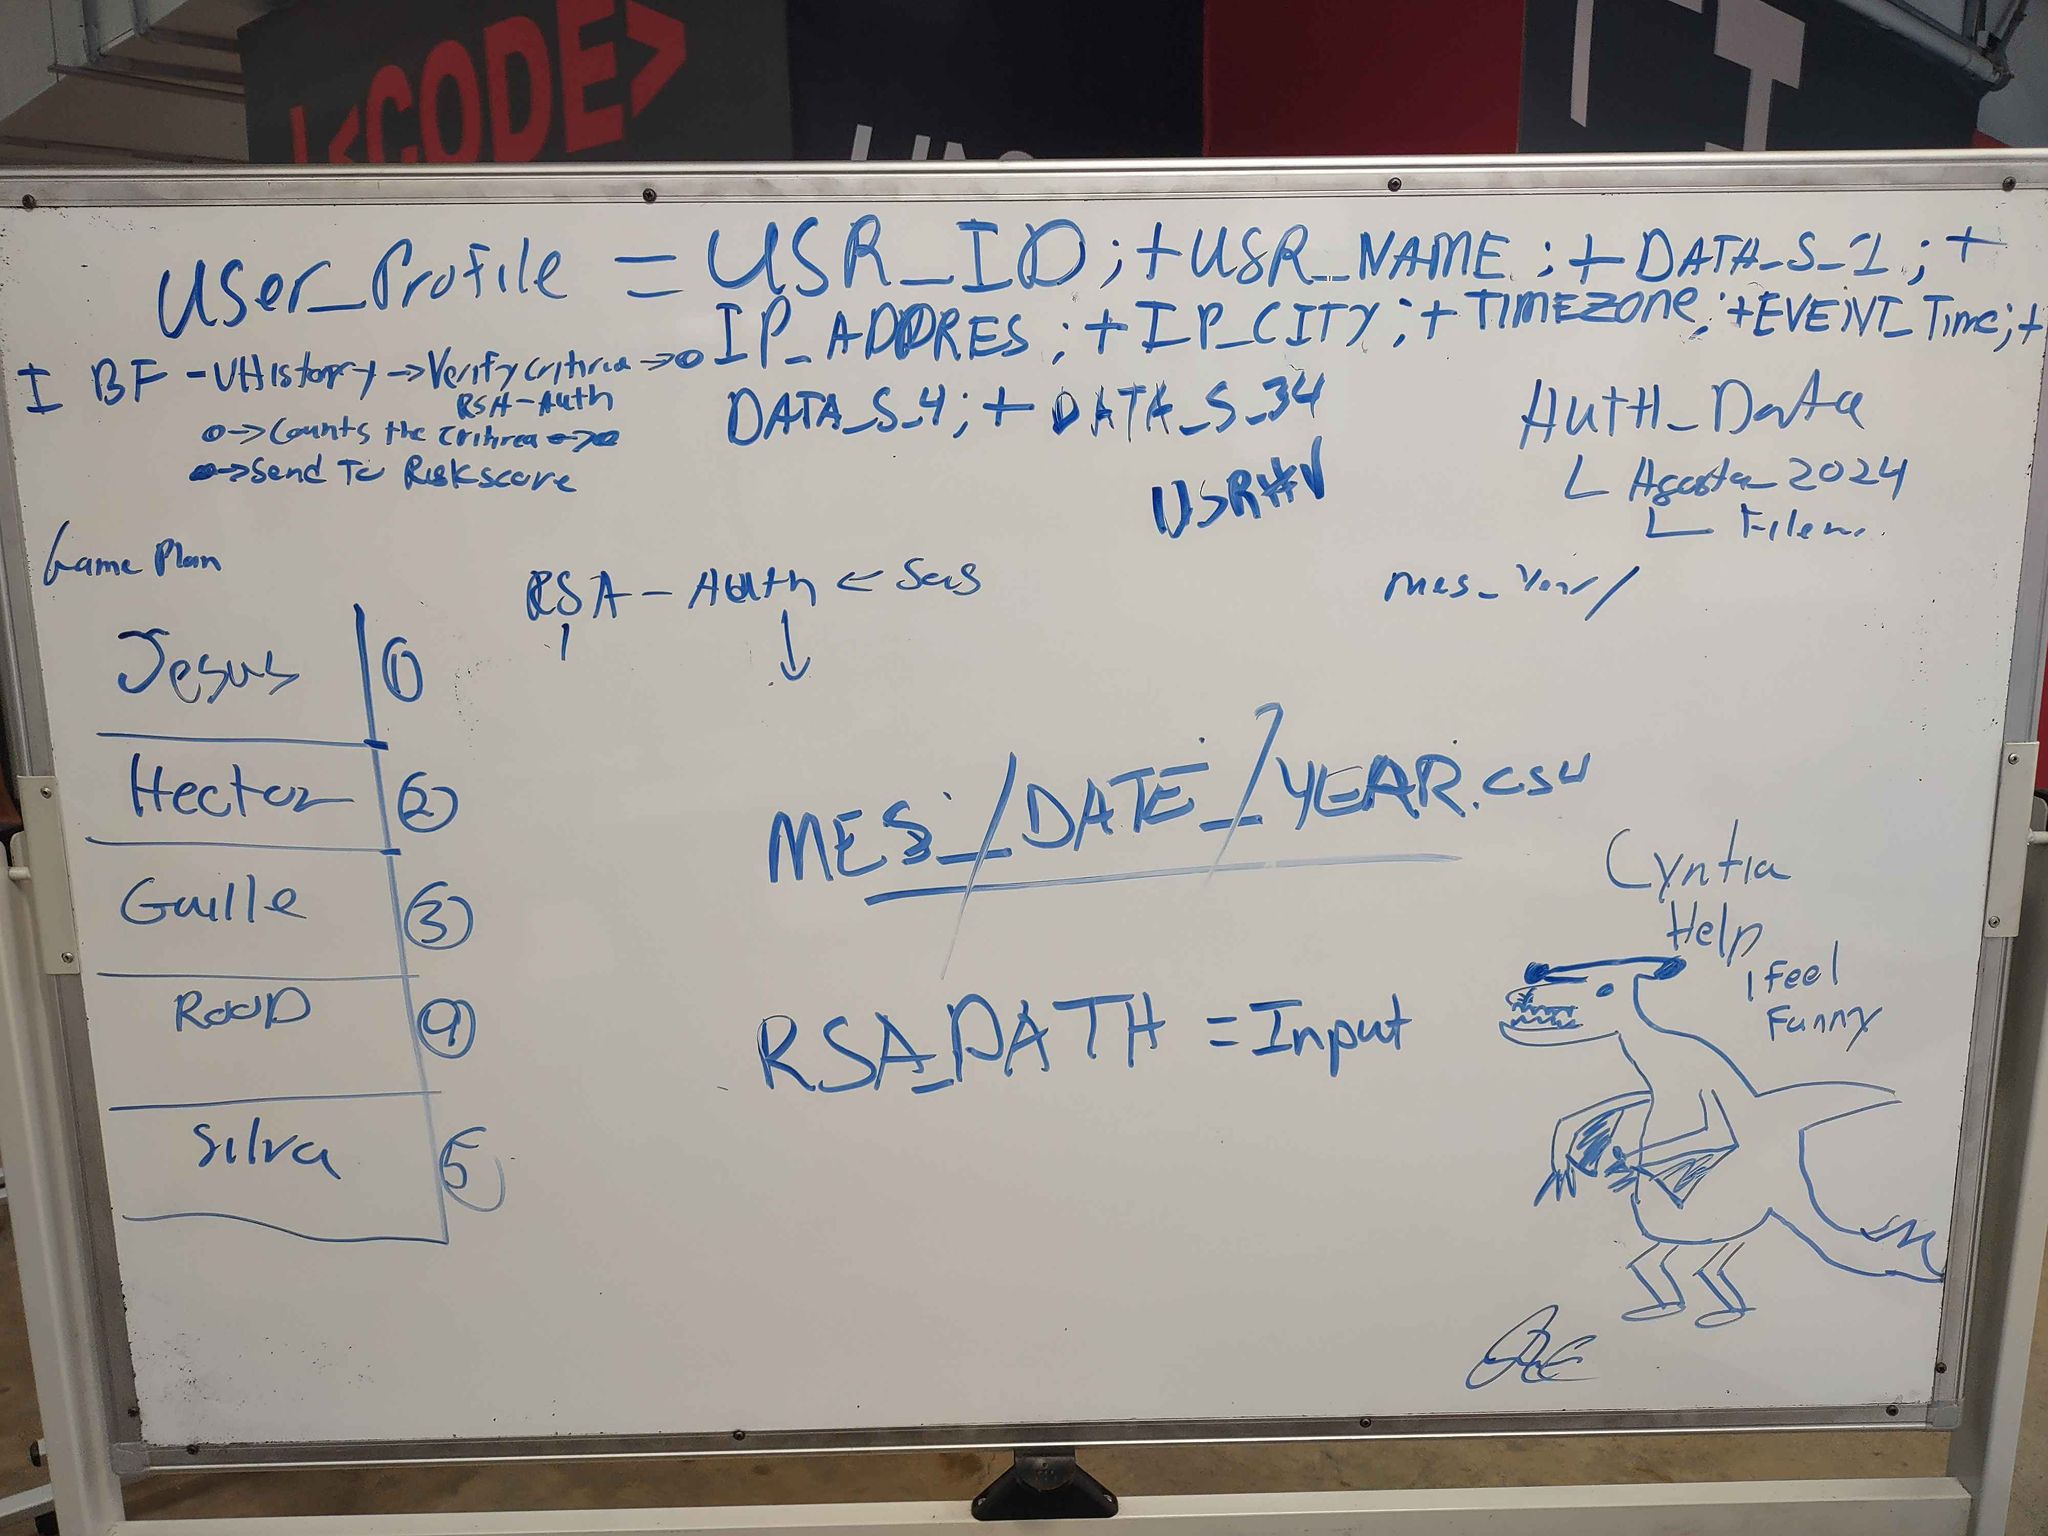 <CODE>
User_Profile = USR_ID; + USR_NAME; + DATA_S_1; +
IP_ADDRES; + IP_CITY; + TIMEZONE; + EVENT_Time; +
DATA_S_4; + DATA_S_34
I BF - UHistory → Verify critirea → o
RSA-Auth
o→ Counts the critirea →
→ Send To Riskscore
USR#V
AUTH_Data
Agosto_2024
Game Plan
RSA-Auth ← Sas
mes_Year/
Jesus 1
Hector 2
Guille 3
RooD 4
Silva 5
MES_/DATE_/YEAR.csv
RSA_PATH = Input
Cyntia
Help
I Feel
Funny